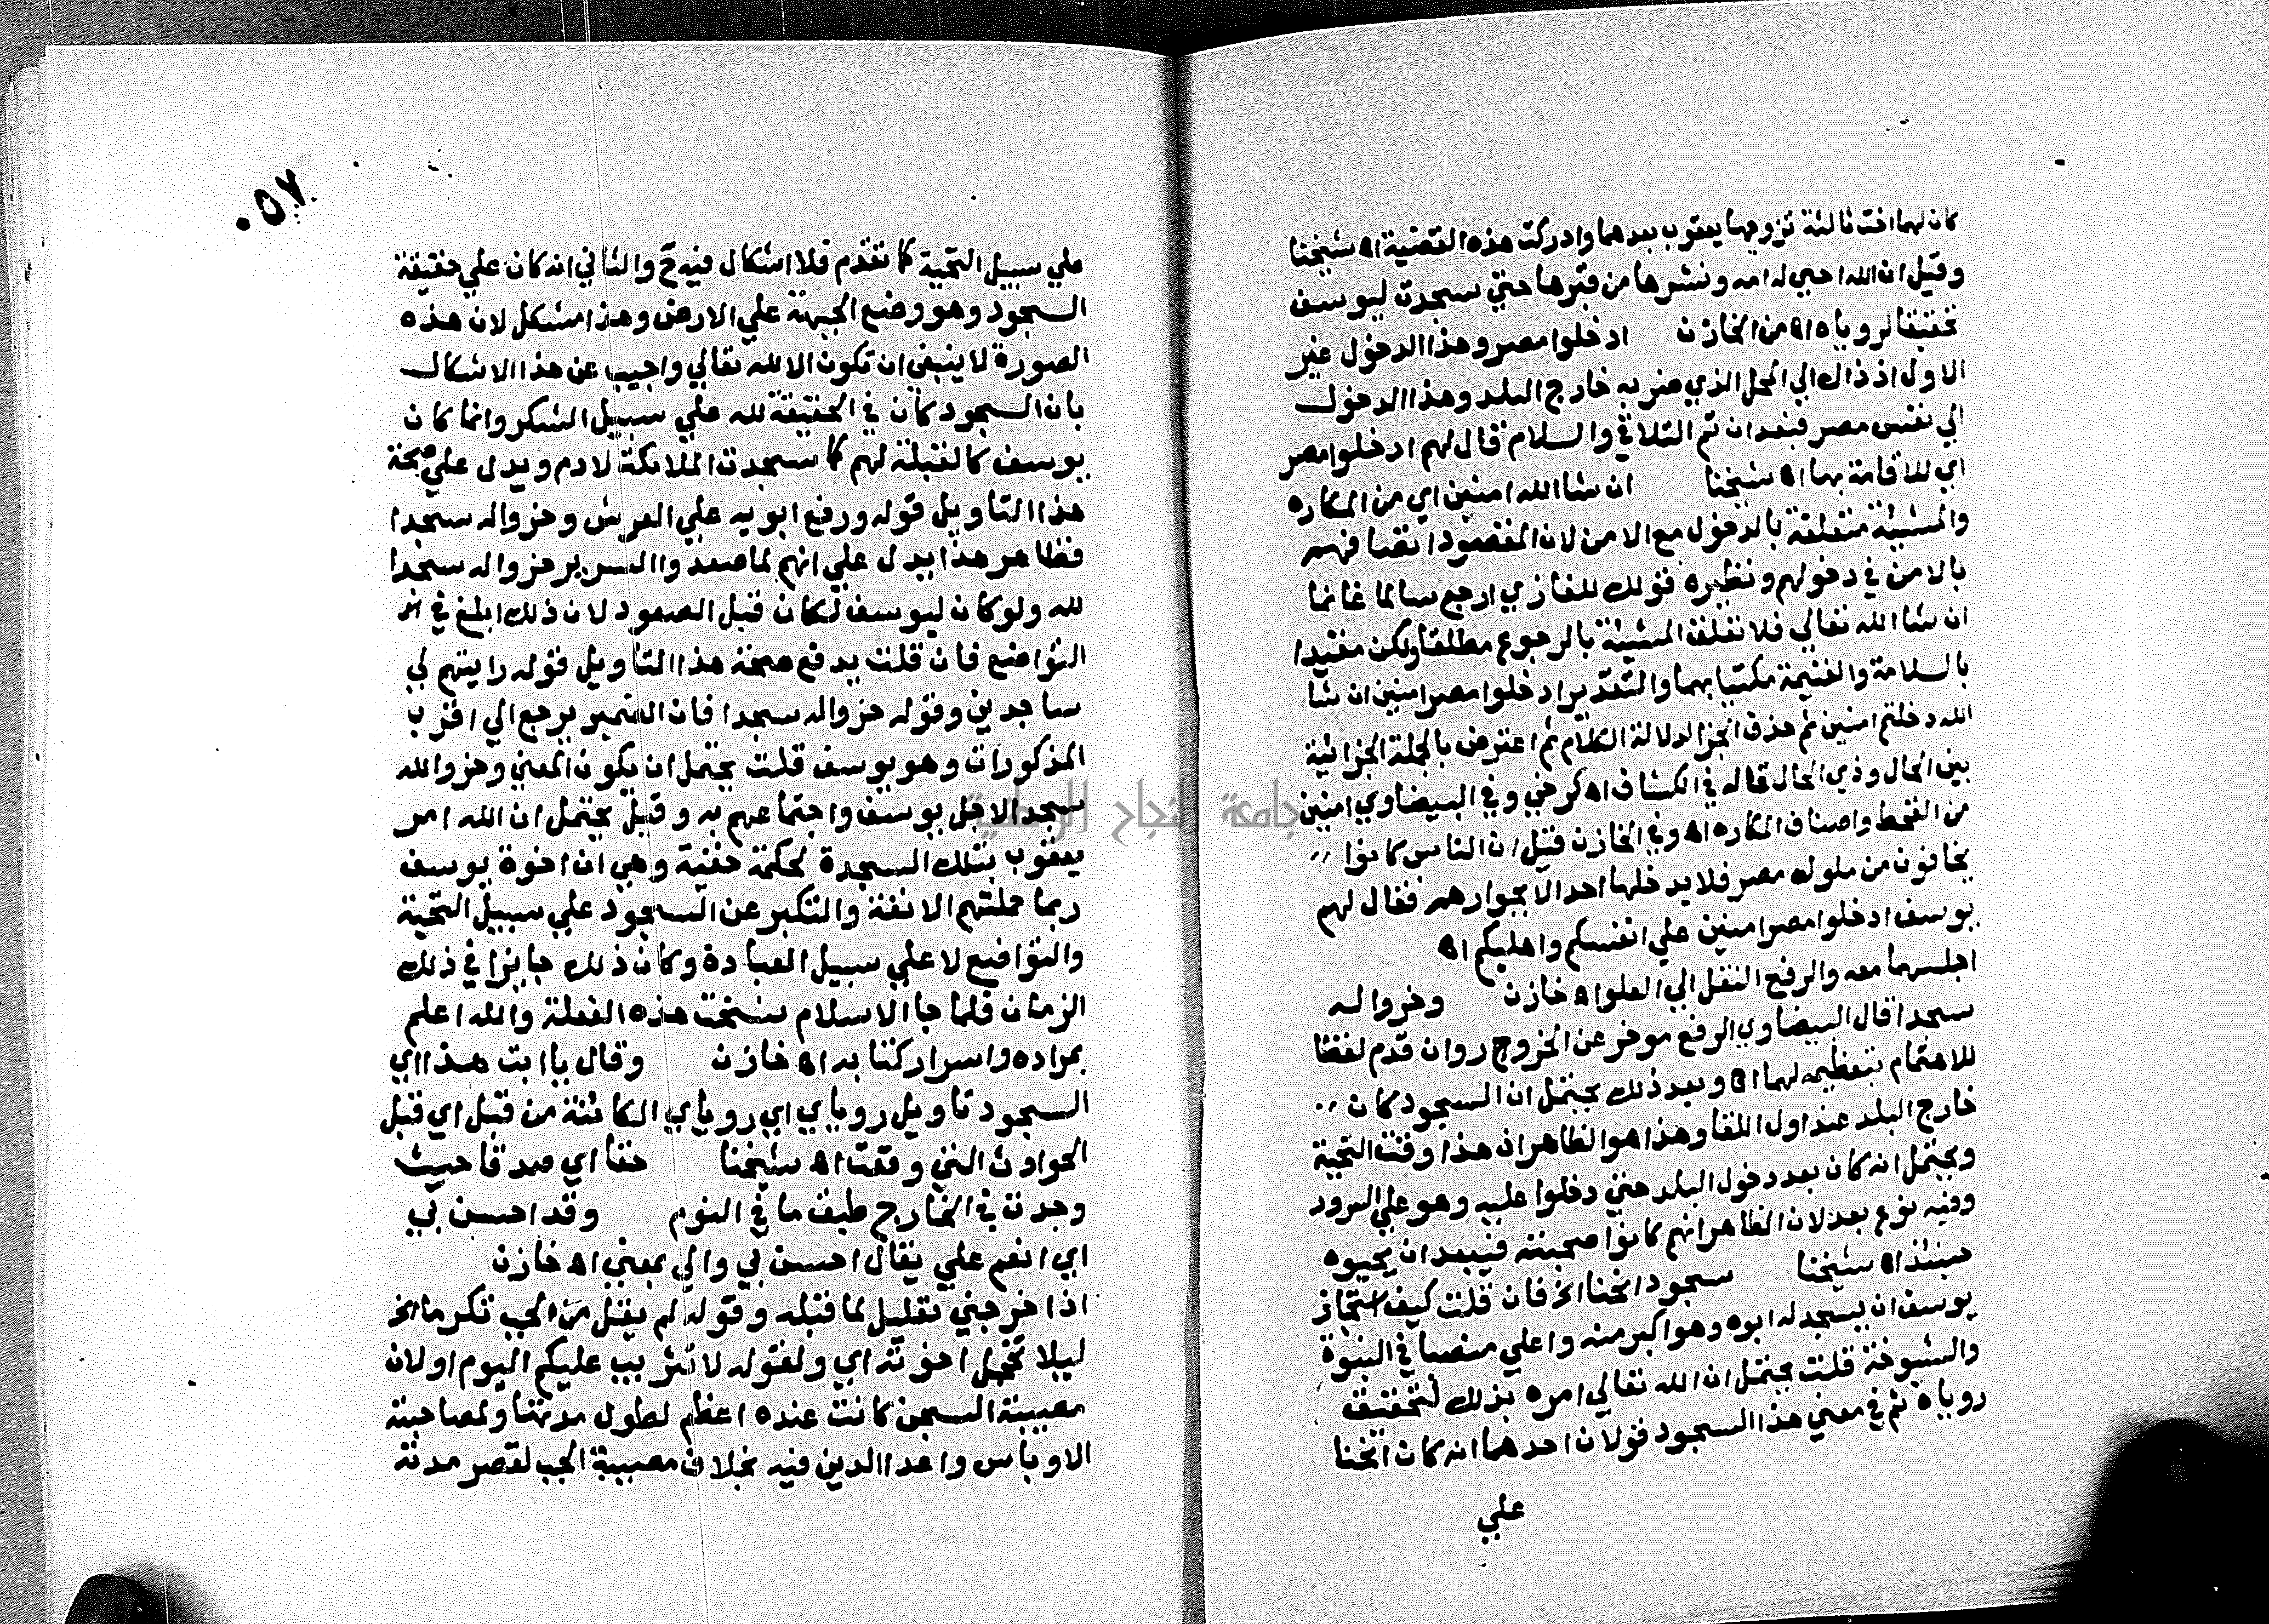 كان لهما اخت ثالثة تزوجها يعقوب بعدهما وادركت هذه القضية اه شيخنا
وقيل ان الله احيى له امه ونشرها من قبرها حتى سجدت ليوسف
تحقيقا لروياه اه من الخازن ادخلوا مصر وهذا الدخول غير
الاول اذ ذاك الي المحل الذي ضربه خارج البلد وهذا الدخول
الي نفس مصر فبعد ان تم التلاقي والسلام قال لهم ادخلوا مصر
اي للاقامة بها اه شيخنا ان شا الله امنين اي من المكاره
والمشيئة متعلقة بالدخول مع الامن لان المقصود اتصافهم
بالامن في دخولهم ونظيره قولك للغازي ارجع سالما غانما
ان شا الله تعالي فلا تعلق المشيئة بالرجوع مطلقا ولكن مقيدا
بالسلامة والغنيمة مكتبا بهما والتقدير ادخلوا مصر امنين ان شا
الله دخلتم امنين ثم حذف الجزا لدلالة الكلام ثم اعترض بالجملة الجزائية
بين الحال وذي الحال قاله في الكشاف اه كرخي وفي البيضاوي امنين
من القحط واصناف المكاره اه وفي الخازن قيل ان الناس كانوا
يخافون من ملوك مصر فلا يدخلها احد الا بجوارهم فقال لهم
يوسف ادخلوا مصر امنين علي انفسكم واهليكم اه
اجلسهما معه والرفع النقل الي العلو اه خازن وخروا له
سجدا قال البيضاوي الرفع موخر عن الخروج روان قدم لفظا
للاهتمام بتعظيمه لهما اه وبعد ذلك يحتمل ان السجود كان
خارج البلد عند اول اللقا وهذا هو الظاهر ان هذا وقت التحية
ويحتمل انه كان بعد دخول البلد حتي دخلوا عليه وهو علي السرور
وفيه نوع بعد لان الظاهر انهم كانوا صحبته فيبعد ان يحيوه
حينئذ اه شيخنا سجود انحنا الخ فان قلت كيف استجاز
يوسف ان يسجد له ابوه وهو اكبر منه واعلي منصبا في النبوة
والشيوخة قلت يحتمل ان الله تعالي امره بذلك لتحقيق
روياه ثم في معني هذا السجود قولان احدهما انه كان انحنا
علي
٠٥٧
علي سبيل التحية كما تقدم فلا اشكال فيه ح والثاني انه كان علي حقيقة
السجود وهو وضع الجبهة علي الارض وهذا مشكل لان هذه
الصورة لا ينبغي ان تكون الا لله تعالي واجيب عن هذا الاشكال
بان السجود كان في الحقيقة لله علي سبيل الشكر وانما كان
يوسف كالقبلة لهم كما سجدت الملائكة لادم ويدل علي صحة
هذا التاويل قوله ورفع ابويه علي العرش وخروا له سجدا
فظاهر هذا يدل علي انهم لما صعدوا السرير خروا له سجدا
لله ولو كان ليوسف لكان قبل الصعود لان ذلك ابلغ في
التواضع فان قلت يدفع صحة هذا التاويل قوله رايتهم لي
ساجدين وقوله خروا له سجدا فان الضمير يرجع الي اقرب
المذكورات وهو يوسف قلت يحتمل ان يكون المعني وخروا لله
سجدا لاجل يوسف واجتماعهم به وقيل يحتمل ان الله امر
يعقوب بتلك السجدة لحكمة خفية وهي ان اخوة يوسف
ربما حملتهم الانفة والتكبر عن السجود علي سبيل التحية
والتواضع لا علي سبيل العبادة وكان ذلك جايزا في ذلك
الزمان فلما جا الاسلام نسخت هذه الفعلة والله اعلم
بمراده واسرار كتابه اه خازن وقال يا ابت هذا اي
السجود تاويل روياي اي روياي الكائنة من قبل اي قبل
الحوادث التي وقعت اه شيخنا حقا اي صدقا حيث
وجدت في الخارج طبق ما في النوم وقد احسن بي
اي انعم علي يقال احسن بي والي بمعني اه خازن
اذ اخرجني تعليل لما قبله وقوله لم يقل من الجب تكرما الخ
ليلا تخجل اخوته اي ولقوله لا تثريب عليكم اليوم او لان
مصيبة السجن كانت عنده اعظم لطول مدتها ولمصاحبة
الاوباش واعدا الدين فيه بخلاف مصيبة الجب لقصر مدته
جامعة النجاح الوطنية